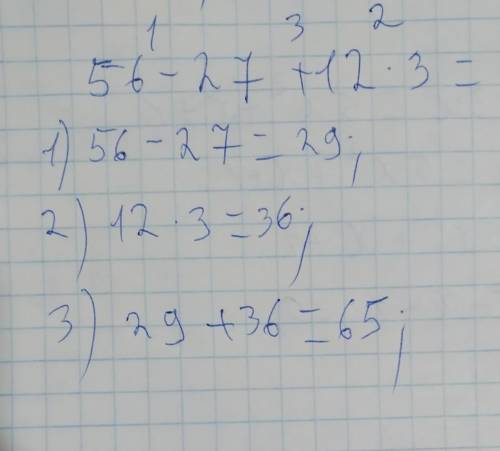 1 3 2
56 - 27 + 12 · 3 =
1) 56 - 27 = 29;
2) 12 · 3 = 36;
3) 29 + 36 = 65;